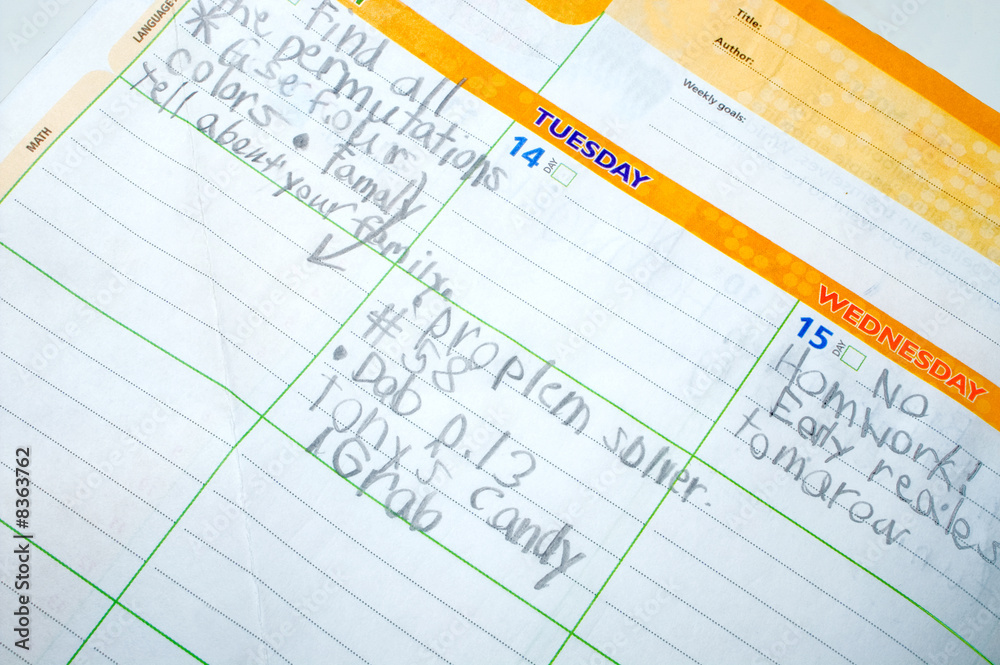 LANGUAGE
MATH
Find all
the permutations
* (use four)
colors • famaly
tell about your family
TUESDAY
14 DAY
proplem solver.
#58
• Dab p.13
Tony's candy
Grab
WEDNESDAY
15 DAY
No
Homwork!!
Eerly
tomarow
Title:
Author:
Weekly goals:
Adobe Stock | #8363762
Adobe Stock